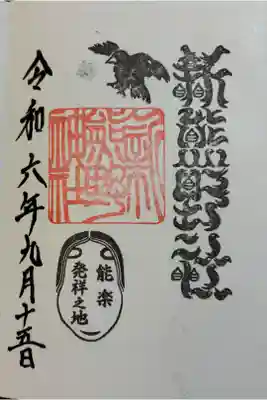 新熊野
新熊野神社
能楽
発祥之地
令和六年九月十五日